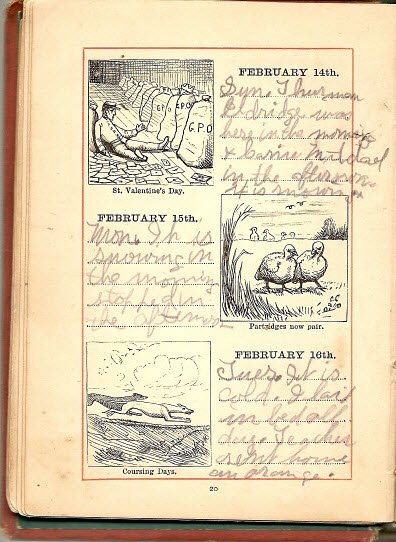 FEBRUARY 14th.
Sun. Thurman
Eldridge was
here in the morning
& Carrie
in the afternoon
It is snowing
G.P.O
G.P.O
G.P.O
St. Valentine's Day.
FEBRUARY 15th.
Mon. It is
snowing in
the morning
stopped in
the afternoon
Partridges now pair.
FEBRUARY 16th.
Tues. It is
cold. I laid
in bed all
day. Teacher
sent home
an orange.
Coursing Days.
20